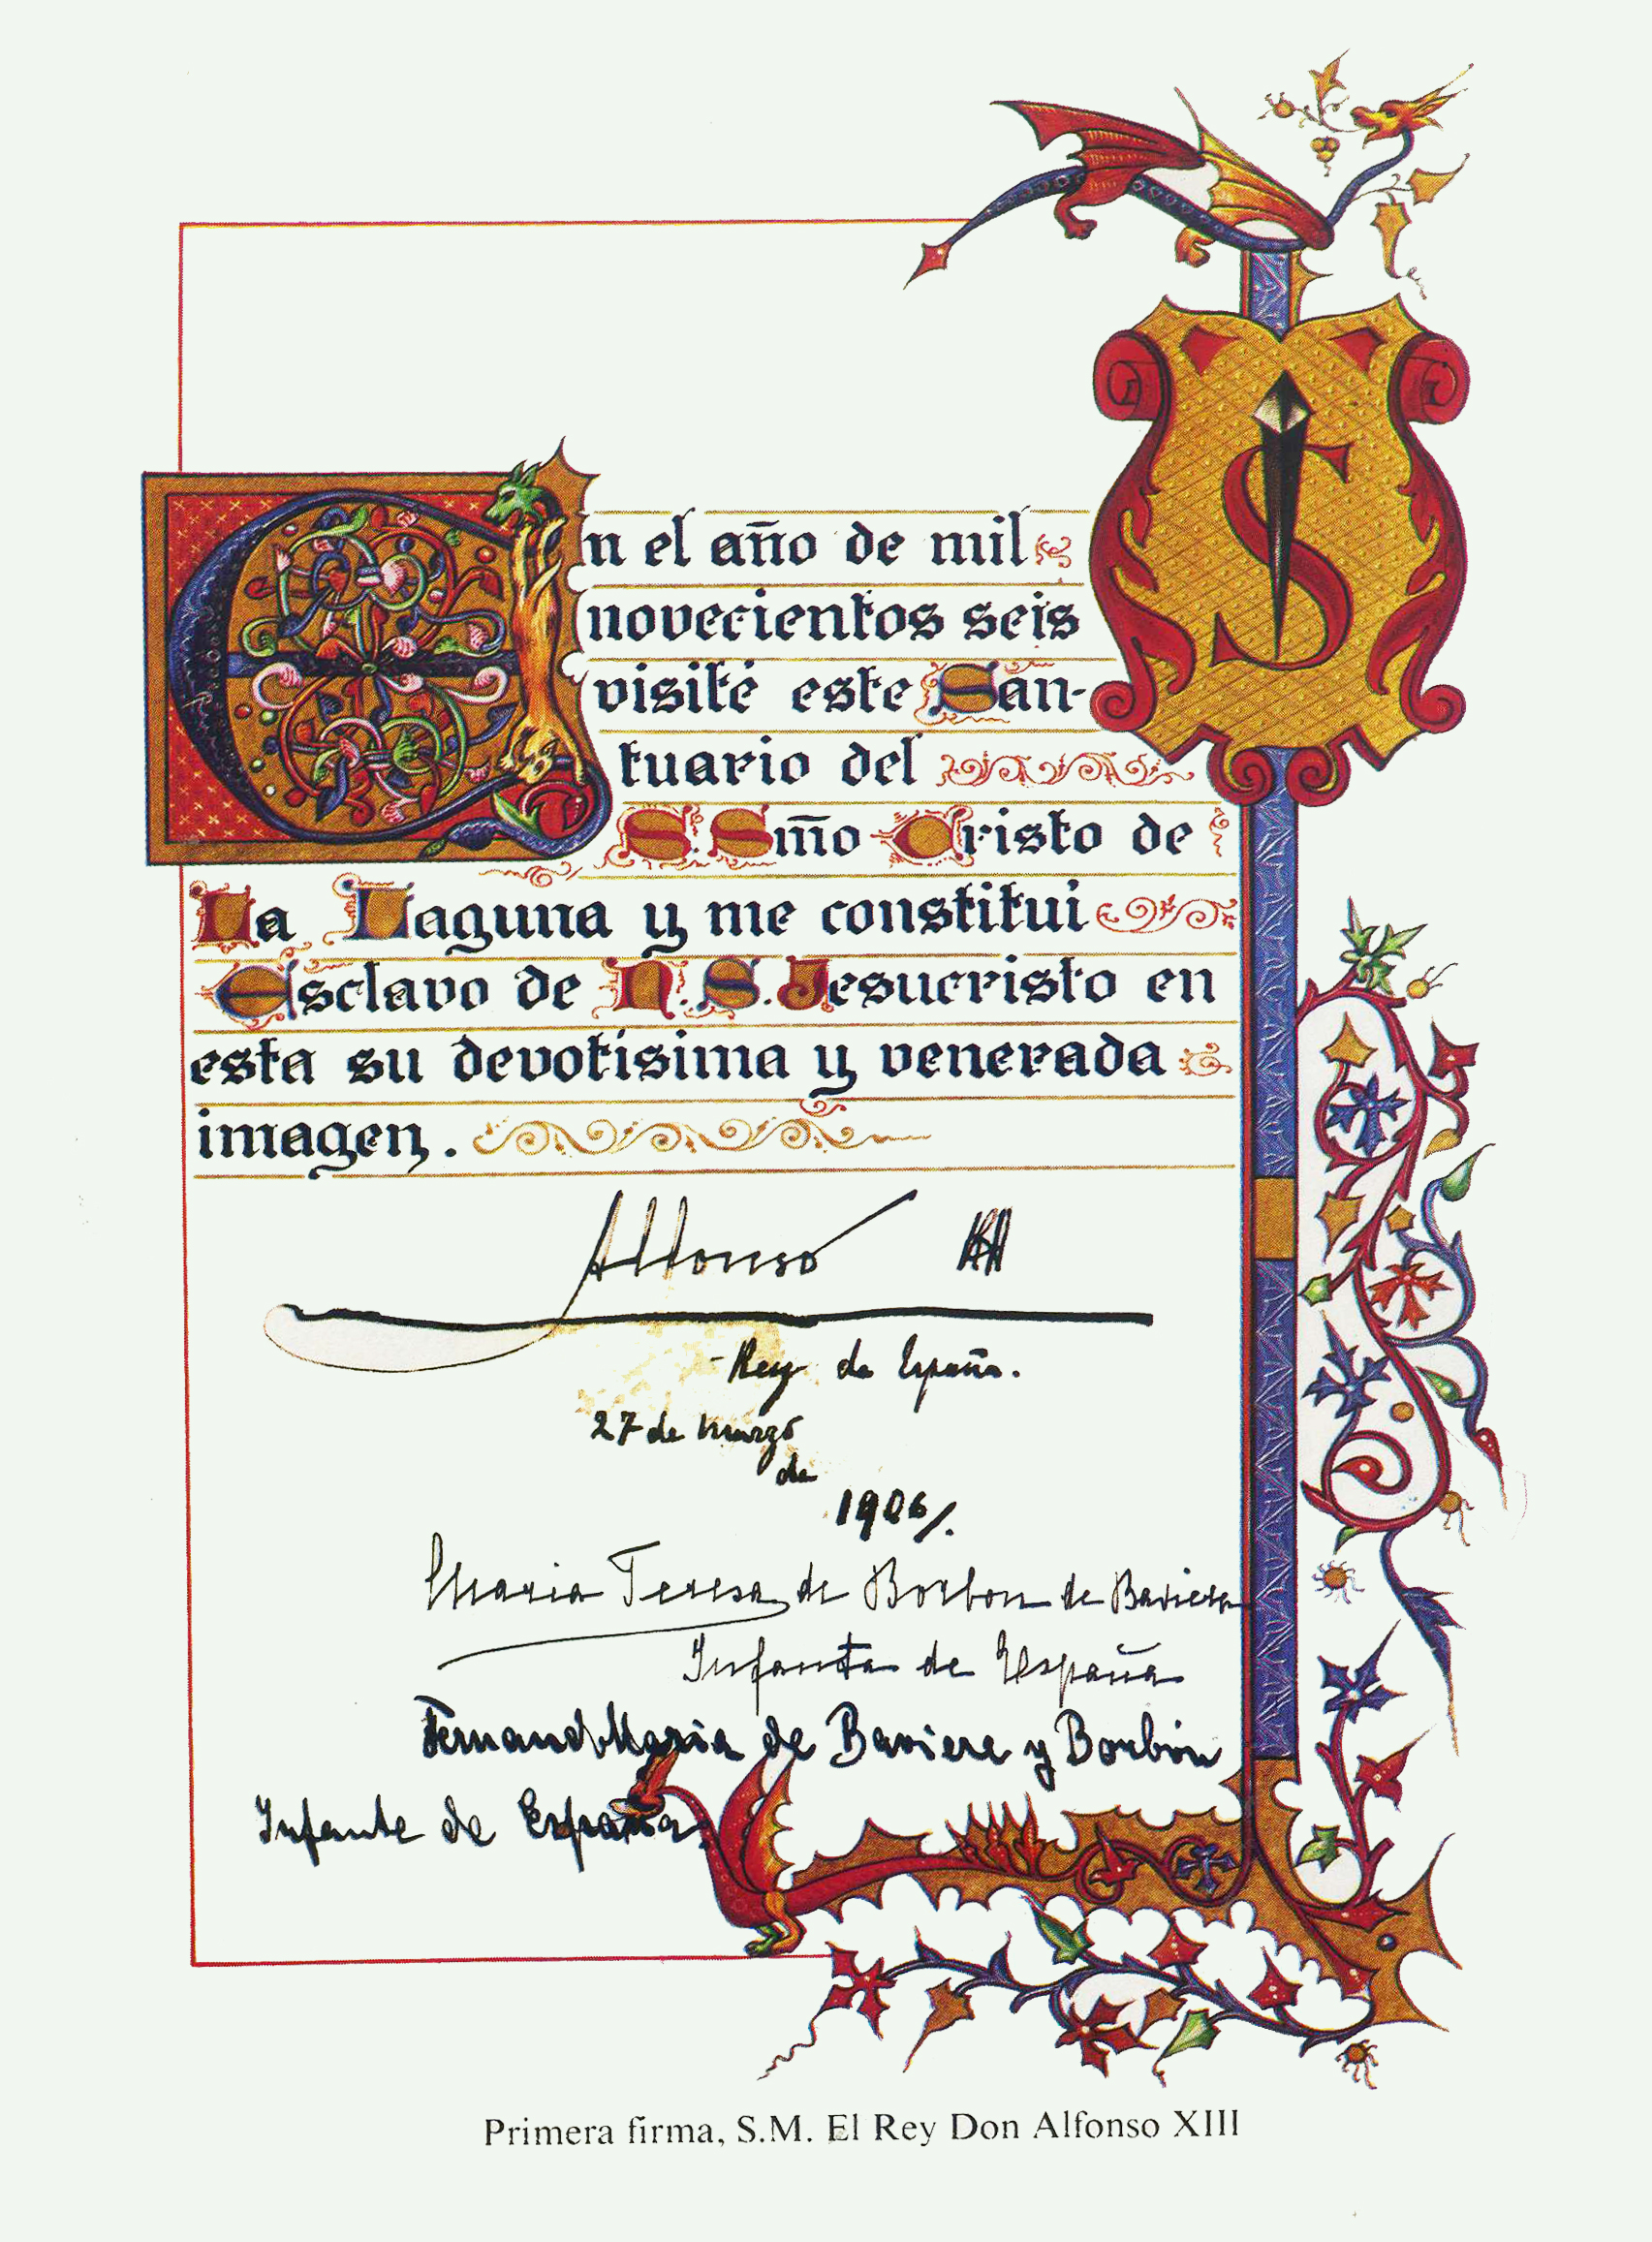 En el año de mil
novecientos seis
visité este San-
tuario del
S. Smo Cristo de
La Laguna y me constitui
Esclavo de N. S. Jesucristo en
esta su devotísima y venerada
imagen.
Alfonso XIII
Rey de España.
27 de marzo
de
1906/.
Maria Teresa de Borbon de Baviera
Infanta de España
Fernando Maria de Baviera y Borbón
Infante de España.
S
Primera firma, S.M. El Rey Don Alfonso XIII